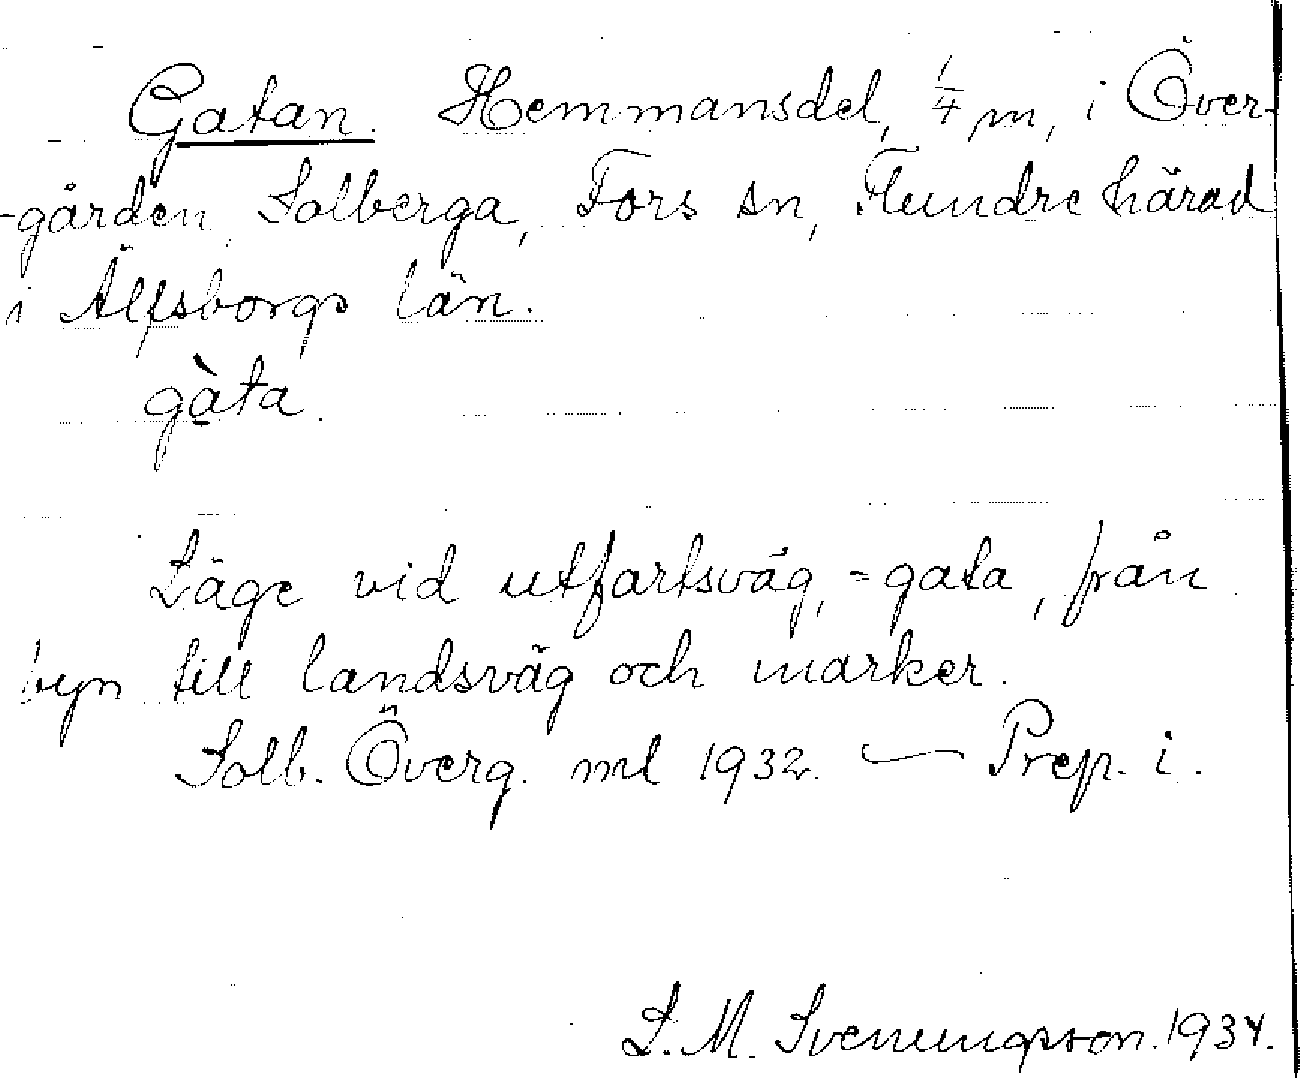 Gatan. Hemmansdel, 1/4 m, i Över-
-gården Solberga, Fors sn, Flundre härad
i Älfsborgs län.
gàta.
Läge vid utfartsväg, =gata, från
byn till landsväg och marker.
Solb. Överg. ml 1932. — Prep. i.
L. M. Svenungsson. 1934.